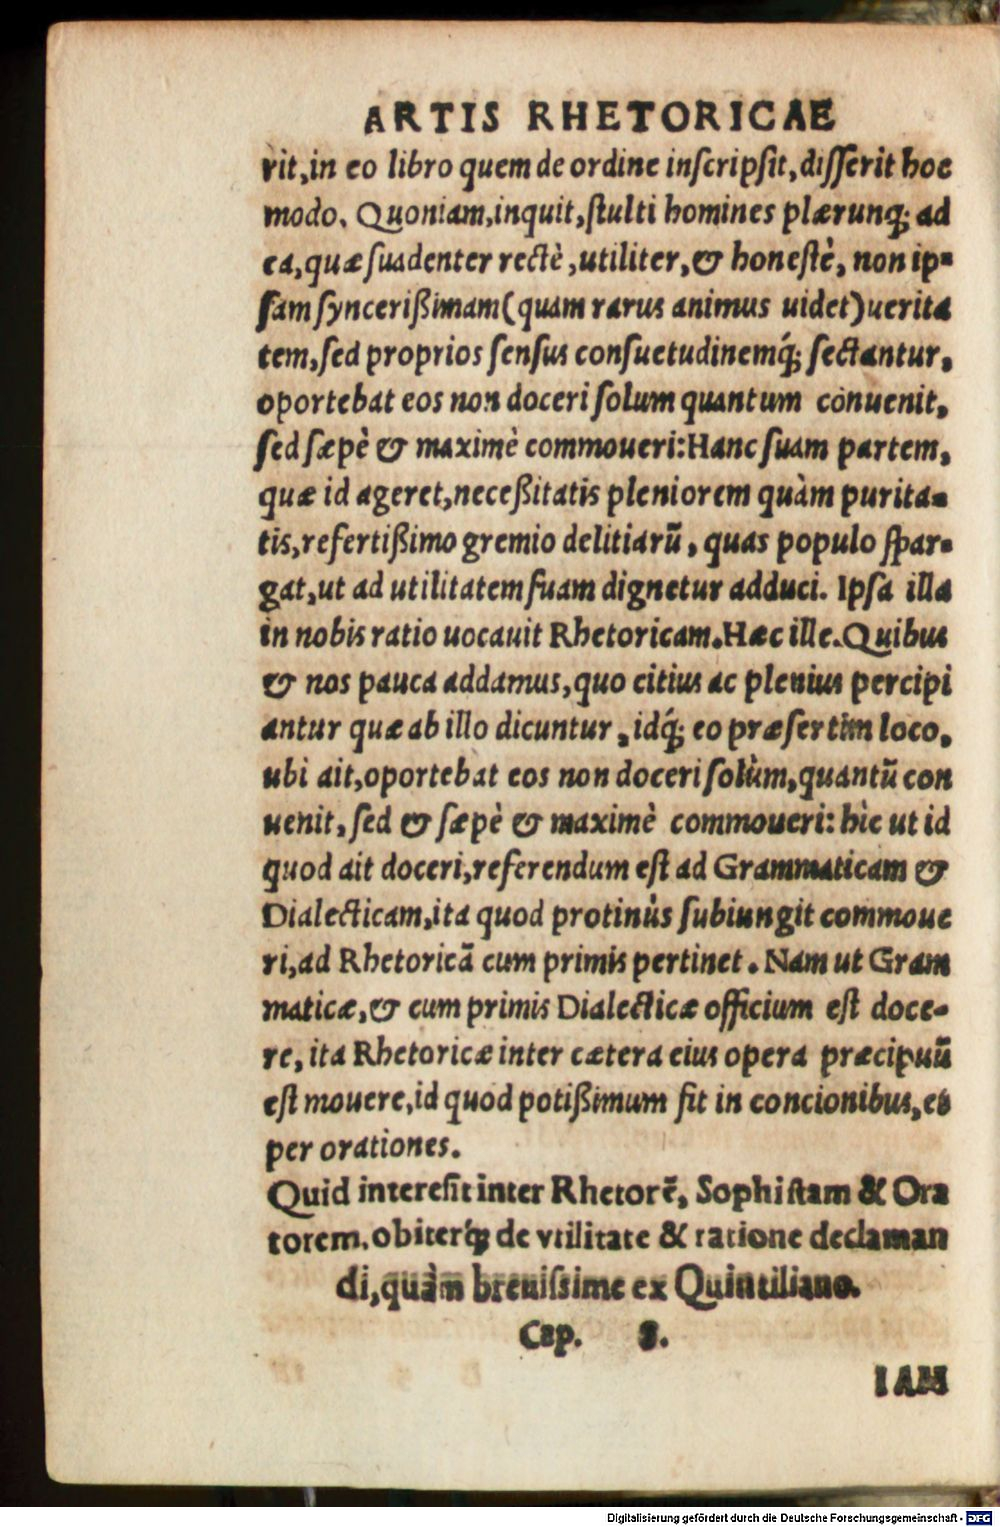 ARTIS RHETORICAE
rit,in eo libro quem de ordine inſcripſit,diſſerit hoc
modo. Quoniam,inquit,ſtulti homines plærunq; ad
ea,quæ ſuadenter rectè,utiliter,& honeſtè, non ip-
ſam ſynceriſsimam(quam rarus animus uidet)uerita
tem,ſed proprios ſenſus conſuetudinemq́; ſectantur,
oportebat eos non doceri ſolum quantum conuenit,
ſed ſæpè & maximè commoueri:Hanc ſuam partem,
quæ id ageret,neceſsitatis pleniorem quàm purita-
tis,refertiſsimo gremio delitiarũ, quas populo ſpar-
gat,ut ad utilitatem ſuam dignetur adduci. Ipſa illa
in nobis ratio uocauit Rhetoricam.Hæc ille.Quibus
& nos pauca addamus,quo citius ac plenius percipi
antur quæ ab illo dicuntur, idq́; eo præſertim loco,
ubi ait,oportebat eos non doceri ſolùm,quantũ con
uenit, ſed & ſæpè & maximè commoueri: hìc ut id
quod ait doceri,referendum eſt ad Grammaticam &
Dialecticam,ita quod protinùs ſubiungit commoue
ri,ad Rhetoricã cum primis pertinet. Nam ut Gram
maticæ,& cum primis Dialecticæ officium eſt doce-
re, ita Rhetoricæ inter cætera eius opera præcipuũ
eſt mouere,id quod potiſsimum fit in concionibus,et
per orationes.
Quid interefit inter Rhetorẽ, Sophiſtam & Ora
torem.obiterq́; de vtilitate & ratione declaman
di,quàm breuiſsime ex Quintiliano.
Cap. 8.
IAM
Digitalisierung gefördert durch die Deutsche Forschungsgemeinschaft - DFG